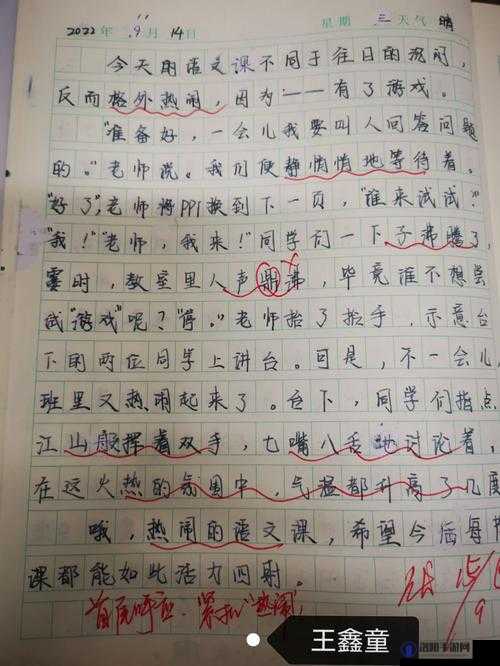 2022年 9月 14日 星期 三 天气 晴
今天的语文课不同于往日的沉闷,
反而格外热闹,因为——有了游戏。
“准备好,一会儿我要叫人回答问题
的。”老师说。我们便静悄悄地等待着。
“好了”,老师将PPT换到下一页,“谁来试试?”
“我!”“老师,我来!”同学们一下子沸腾了,
霎时,教室里人声鼎沸,毕竟谁不想尝
试“游戏”呢?“停。”老师抬了抬手,示意台
下的两位同学上讲台。可是,不一会儿
班里又热闹起来了。台下,同学们指点
江山般挥着双手,七嘴八舌地讨论着,
在这火热的氛围中,气温都升高了几度
哦,热闹的语文课,希望今后每
课都能如此活力四射。
首尾呼应.紧扣“热闹”
9
王鑫童
洛阳手游网